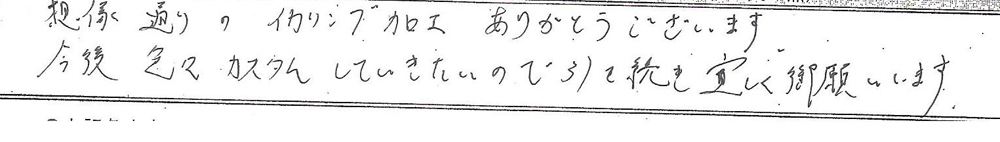 想像通りのイカリング加工ありがとうございます
今後色々カスタムしていきたいので引き続き宜しく御願いします